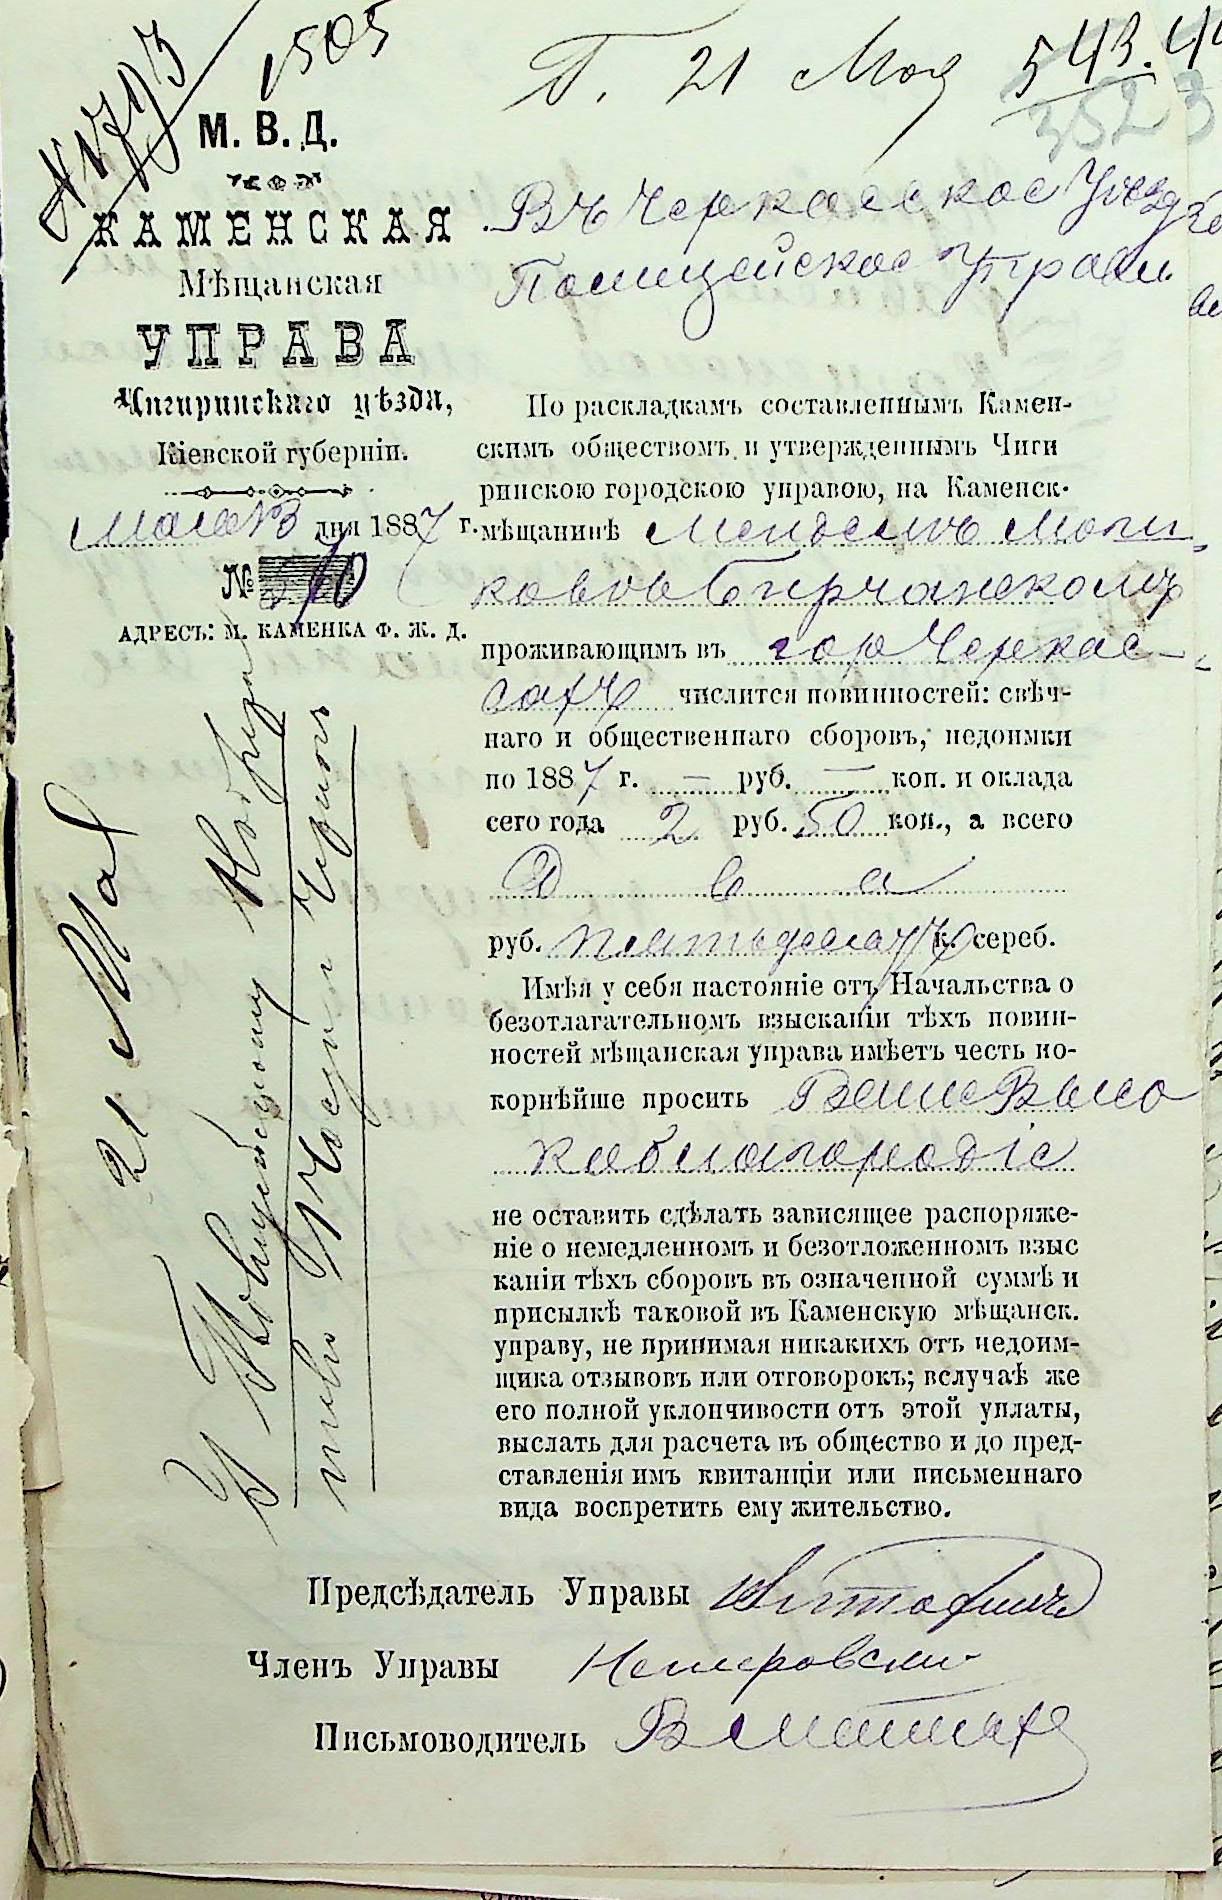 1505
П. 21 Мая 543.
3523
М. В. Д.
КАМЕНСКАЯ
Мѣщанская
УПРАВА
Чигиринскаго уѣзда,
Кіевской губерніи.
Мая 13 дня 1887 г.
№
АДРЕСЪ: М. КАМЕНКА Ф. Ж. Д.
Въ Черкасское Уѣзд
Полицейское Управл.
По раскладкамъ составленнымъ Камен-
скимъ обществомъ и утвержденнымъ Чиги
ринскою городскою управою, на Каменск.
мѣщанинѣ
проживающимъ въ гор Черкас-
сахъ числится повинностей: свѣч-
наго и общественнаго сборовъ, недоимки
по 1887 г. — руб. — коп. и оклада
сего года 2 руб. 50 коп., а всего
Два
руб. пятьдесятъ к. сереб.
Имѣя у себя настояніе отъ Начальства о
безотлагательномъ взысканіи тѣхъ повин-
ностей мѣщанская управа имѣетъ честь по-
корнѣйше просить Ваше Высо
коблагородіе
не оставить сдѣлать зависящее распоряже-
ніе о немедленномъ и безотложенномъ взыс
каніи тѣхъ сборовъ въ означенной суммѣ и
присылкѣ таковой въ Каменскую мѣщанск.
управу, не принимая никакихъ отъ недоим-
щика отзывовъ или отговорокъ; вслучаѣ же
его полной уклончивости отъ этой уплаты,
выслать для расчета въ общество и до пред-
ставленія имъ квитанціи или письменнаго
вида воспретить ему жительство.
21 Мая
Г Полицейскому
Предсѣдатель Управы
Членъ Управы
Письмоводитель